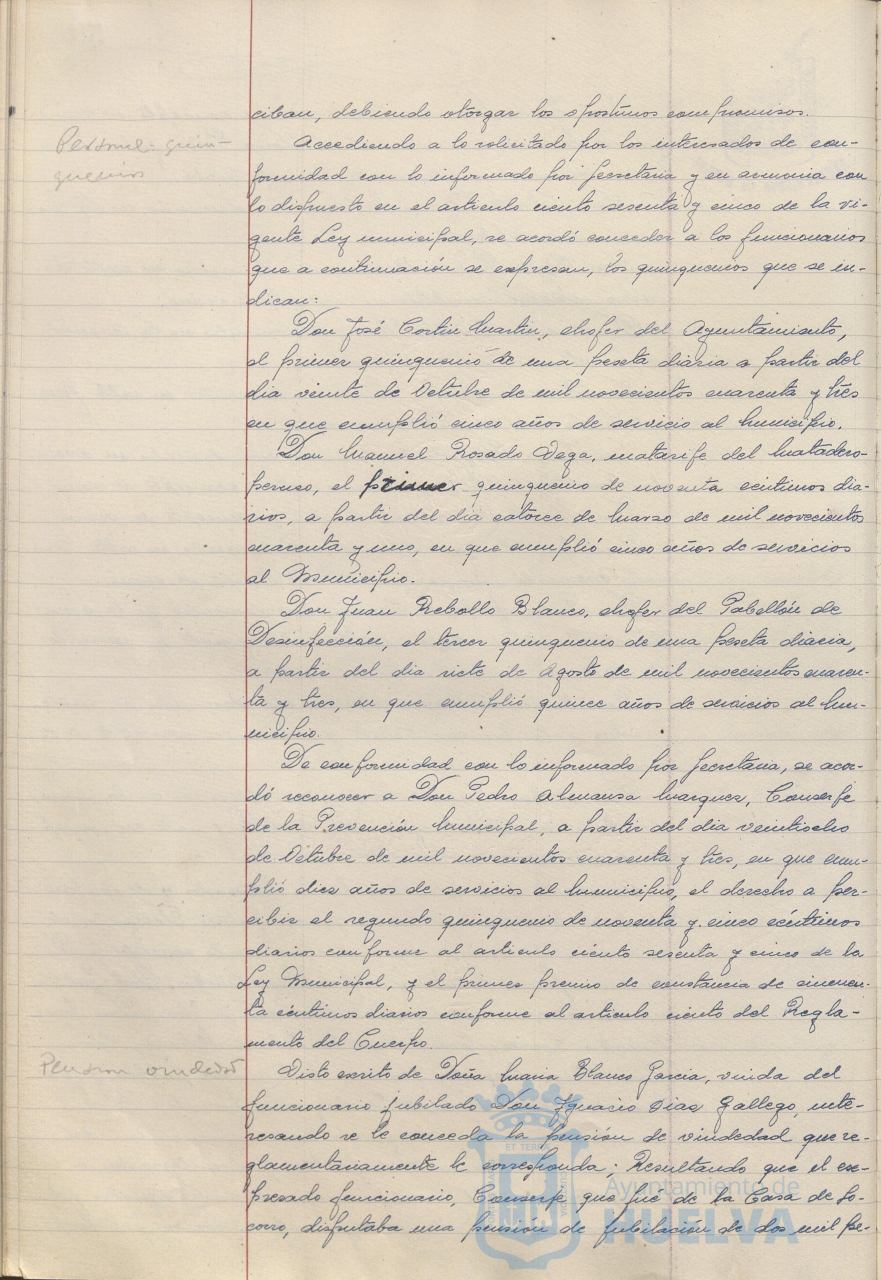 ciban, debiendo otorgar los oportunos compromisos.
Personal-quin-
quenios
Accediendo a lo solicitado por los interesados de con-
formidad con lo informado por Secretaria y en armonia con
lo dispuesto en el articulo ciento sesenta y cinco de la vi-
gente Ley municipal, se acordó conceder a los funcionarios
que a continuación se expresan, los quinquenios que se in-
dican:
Don José Cortin Martin, chofer del Ayuntamiento,
el primer quinquenio de una peseta diaria a partir del
dia veinte de Octubre de mil novecientos cuarenta y tres
en que cumplió cinco años de servicio al Municipio.
Don Manuel Rosado Vega, matarife del Matadero-
peruso, el primer quinquenio de noventa centimos dia-
rios, a partir del dia catorce de Marzo de mil novecientos
cuarenta y uno, en que cumplió cinco años de servicios
al Municipio.
Don Juan Rebollo Blanco, chofer del Pabellón de
Desinfección, el tercer quinquenio de una peseta diaria,
a partir del dia siete de Agosto de mil novecientos cuaren-
ta y tres, en que cumplió quince años de servicios al Mu-
nicipio.
De conformidad con lo informado por Secretaria, se acor-
dó reconocer a Don Pedro Almansa Marquez, Conserje
de la Prevención Municipal, a partir del dia veintiocho
de Octubre de mil novecientos cuarenta y tres, en que cum-
plió diez años de servicios al Municipio, el derecho a per-
cibir el segundo quinquenio de noventa y cinco céntimos
diarios conforme al articulo ciento sesenta y cinco de la
Ley Municipal, y el primer premio de constancia de cincuen-
ta céntimos diarios conforme al articulo ciento del Regla-
mento del Cuerpo.
Pension viudedad
Visto escrito de Doña Maria Blanco Garcia, viuda del
funcionario jubilado Don Ignacio Diaz Gallego, inte-
resando se le conceda la pensión de viudedad que re-
glamentariamente le corresponda; Resultando que el ex-
presado funcionario, Conserje que fué de la Casa de So-
corro, disfrutaba una pensión de jubilación de dos mil pe-
Ayuntamiento de
HUELVA